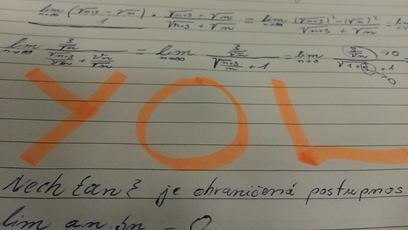 lim n→∞ (√n+3 - √n) / 1 · √n+3 + √n / √n+3 + √n = lim n→∞ (√n+3)² - (√n)² / √n+3 + √n = lim
lim n→∞ 3/√n / √n+3/√n + √n/√n = lim n→∞ 3/√n / √n+3/n + 1 = lim n→∞ 3/√n →0 / √1+3/n + 1 →0
YOL
Nech {an} je ohraničená postupnos
lim an bn = 0